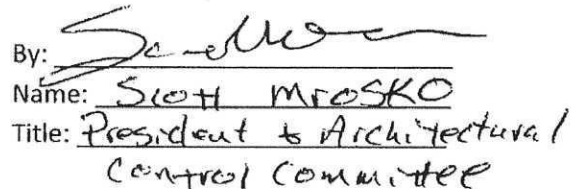 By:
Name: Scott Mrosko
Title: President & Architectural
Control Committee